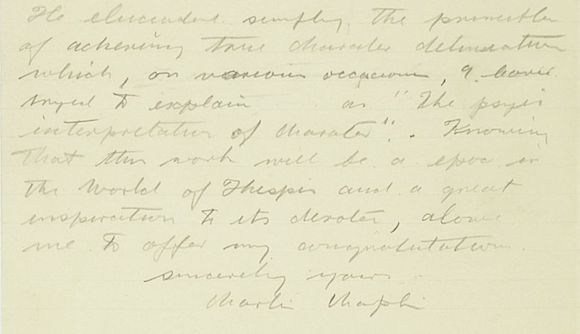 He elucidates simply, the principles
of achieving true character delineation
which, on various occasions, I have
tryed to explain as "The psyic
interpretation of character". Knowing
that this work will be a epoc in
the World of Thespis and a great
inspiration to its devotes, alow
me to offer my congratulations.
sincerely yours
Charlie Chaplin